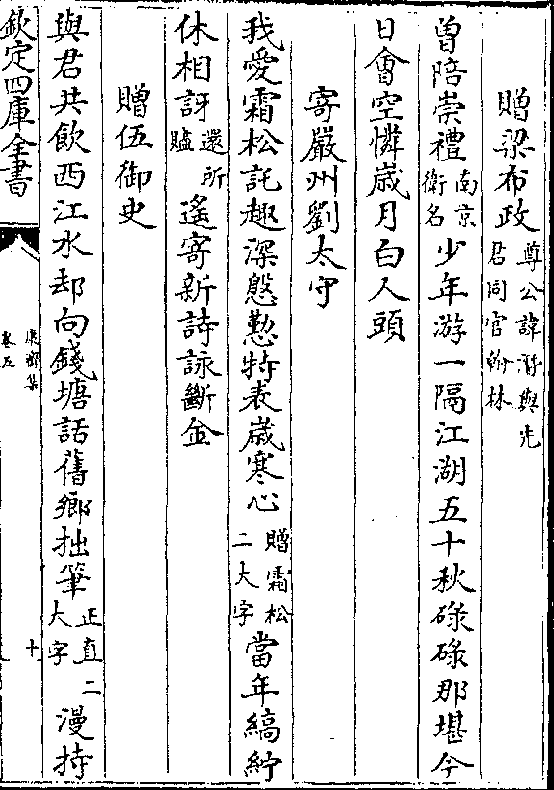 贈梁布政尊公諱潛與先君同官翰林
曽陪崇禮南京衛名少年游一隔江湖五十秋碌碌那堪今
日會空憐嵗月白人頭
寄嚴州劉太守
我愛霜松託趣深慇懃特表嵗寒心贈霜松二大字當年縞紵
休相訝還所贐遙寄新詩詠斷金
贈伍御史
與君共飲西江水却向錢塘話舊鄉拙筆正直二大字漫持
欽定四庫全書
卷五
十